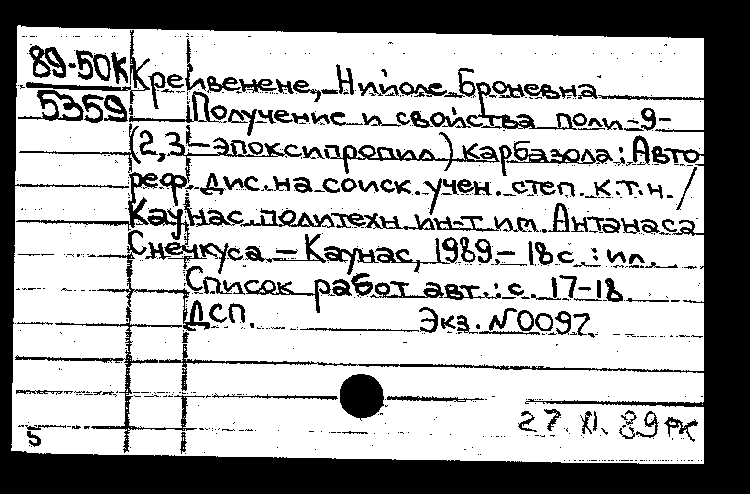 89-50К
5359
Крейвенене, Нийоле Броневна
Получение и свойства поли-9-
(2,3-эпоксипропил) карбазола: Авто-
реф. дис. на соиск. учен. степ. к.т.н. /
Каунас. политехн. ин-т им. Антанаса
Снечкуса. - Каунас, 1989. - 18 с. : ил.
Список работ авт.: с. 17-18.
ДСП. Экз. №0097
27. XI. 89 РК
5